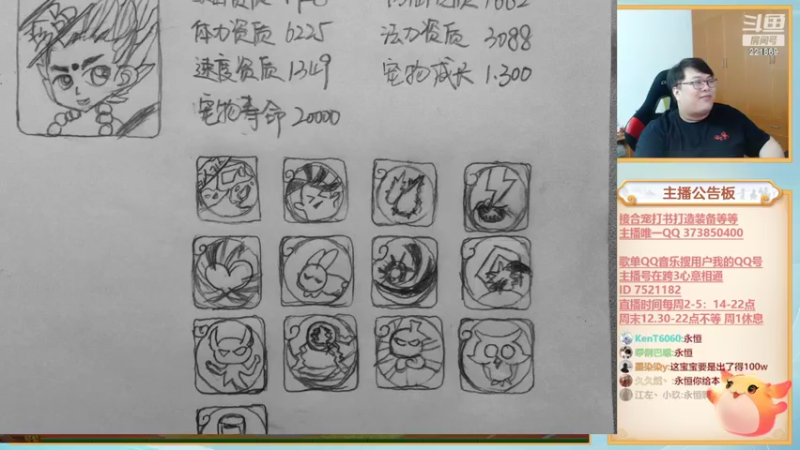 体力资质 6225
法力资质 3088
速度资质 1349
宠物成长 1.300
宠物寿命 20000
斗鱼
房间号
221869
主播公告板
接合宠打书打造装备等等
主播唯一QQ 373850400
歌单QQ音乐搜用户我的QQ号
主播号在跨3心意相通
ID 7521182
直播时间每周2-5：14-22点
周末12.30-22点不等 周1休息
KenT6060:永恒
:永恒
墨染染y:这宝宝要是出了得100w
久久 :永恒你给本
江左、小玖:永恒